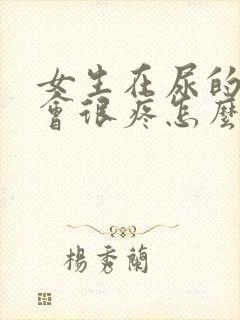 女生在尿的
會很疼怎麼
楊秀蘭